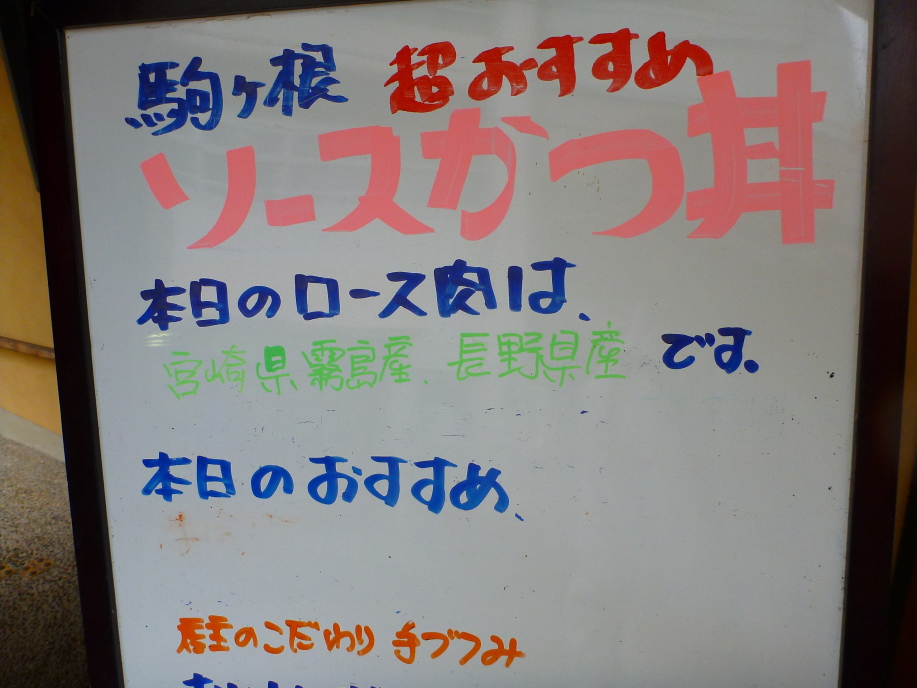 駒ヶ根 超おすすめ
ソースかつ丼
本日のロース肉は、
宮崎県霧島産、長野県産 です。
本日のおすすめ、
店主のこだわり 手づつみ